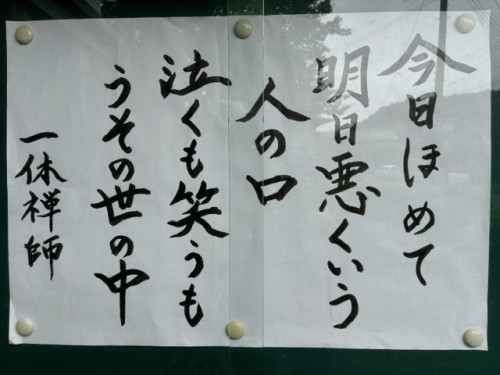 今日ほめて
明日悪くいう
人の口
泣くも笑うも
うその世の中
一休禅師